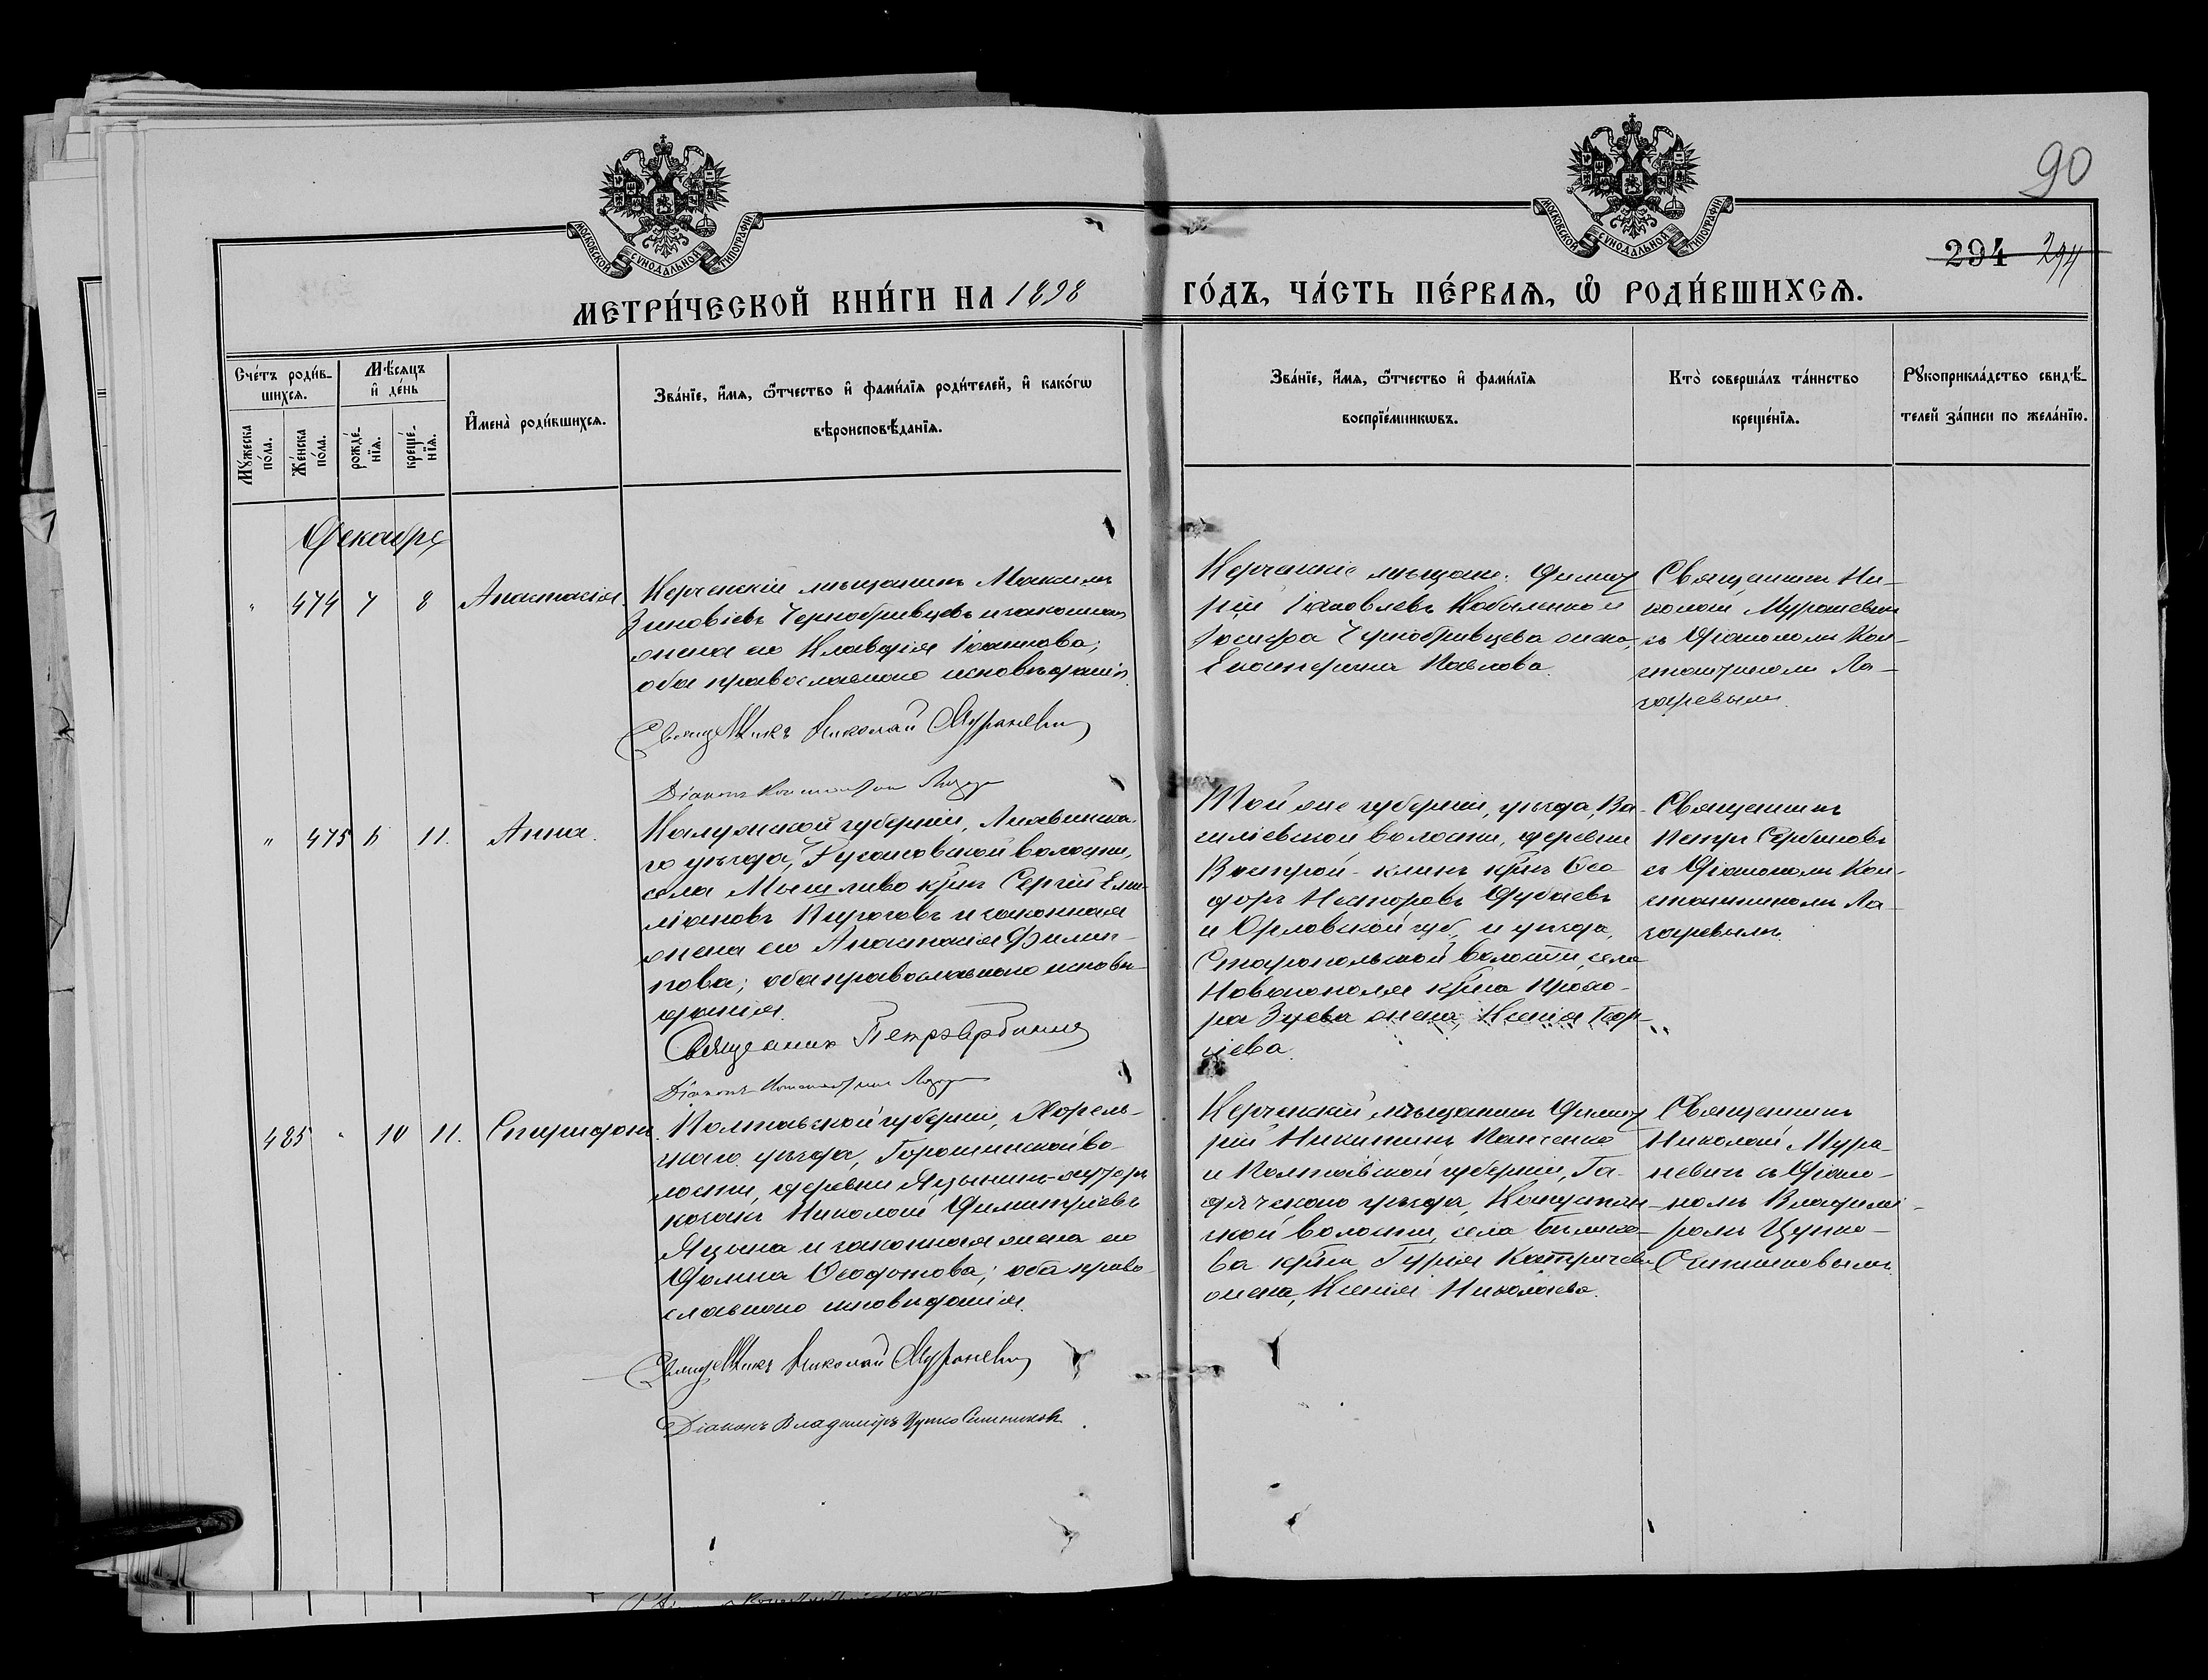 90
294 294
МОСКОВСКОЙ СѴНОДАЛЬНОЙ ТИПОГРАФІИ
МОСКОВСКОЙ СѴНОДАЛЬНОЙ ТИПОГРАФІИ
МЕТРИ́ЧЕСКОЙ КНИ́ГИ НА 1898 ГО́ДЪ, ЧА́СТЬ ПЕ́РВАѦ, Ѽ РОДИ́ВШИХСѦ.
Сче́тъ роди́в-
шихсѧ.
Мѣ́сѧцъ
и҆ де́нь
Мꙋ́жеска
по́ла.
Же́нска
по́ла.
рожде́-
нїѧ.
креще́-
нїѧ.
И҆мена̀ роди́вшихсѧ.
Зва́нїе, и҆́мѧ, ѻ҆́тчество и҆ фами́лїѧ роди́телей, и҆ како́гѡ
вѣроисповѣ́данїѧ.
Зва́нїе, и҆́мѧ, ѻ҆́тчество и҆ фами́лїѧ
воспрїе́мникѡвъ.
Кто̀ соверша́лъ та́инство
креще́нїѧ.
Рꙋкоприкла́дство свидѣ́-
телей за́писи по жела́нїю.
Декабрь
" 474 7 8 Анастасія.
Керченскій мѣщанинъ Максимъ
Зиновіевъ Чернобривцевъ и законная
жена его Клавдія Іоаннова;
оба православнаго исповѣданія.
Священникъ Николай Мураневич
Діаконъ Константин Лазар
Керченскіе мѣщане: Димит
рій Іаковлевъ Кобыленко и
Іосифа Чернобривцева жена,
Екатерина Павлова.
Священникъ Ни-
колай Мураневич
съ Діакономъ Кон-
стантиномъ Ла-
заревымъ.
" 475 11. Анна.
Калужской губерніи, Лихвинска
го уѣзда, волости,
села Мышливо кр҃нъ Сергій Еми-
ліановъ Пироговъ и законная
жена его Анастасія Филип-
пова; оба православнаго исповѣ-
данія.
Священник Петр Сербинов
Діаконъ Константин Лазар
Той же губерніи, уѣзда, Ва-
силіевской волости, деревни
Вострой-клинъ кр҃нъ Ѳео-
доръ Несторовъ Дубаевъ
и Орловской губ. и уѣзда,
Старопольской волости, села
Новополя кр҃на Прохо-
ра Зуева жена, Ксенія Геор-
гіева.
Священникъ
Петръ Сербиновъ
съ Діакономъ Кон-
стантиномъ Ла-
заревымъ.
485 " 10 11. Спиридонъ.
Полтавской губерніи, Хороль-
скаго уѣзда, Горошинской во-
лости, деревни Яцынинъ-хуторъ
козакъ Николай Димитріевъ
Яцына и законная жена его
Домна Ѳеодотова; оба право-
славнаго исповѣданія.
Священникъ Николай Мураневич
Діаконъ Владиміръ Цупко Ситниковъ.
Керченскій мѣщанинъ Димит
рій Никитинъ Панченко
и Полтавской губерніи, Га-
дячскаго уѣзда,
ской волости, села
ва кр҃на Гурія Катричева
жена, Ксенія Николаева.
Священникъ
Николай Мура-
невич съ Діако-
номъ Владимі-
ромъ Цупко-
Ситниковымъ.